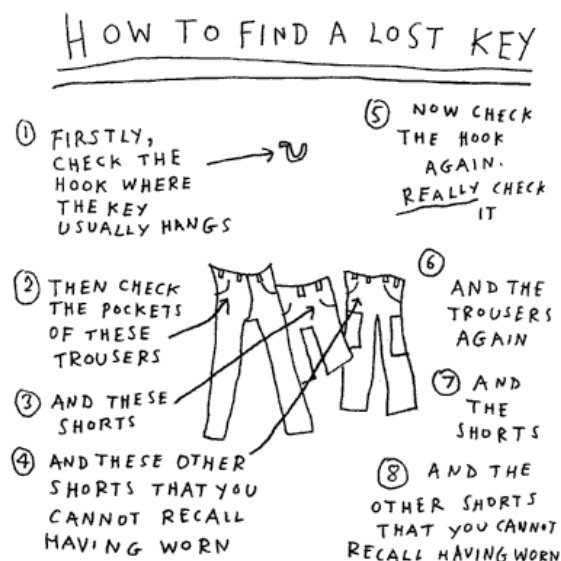 HOW TO FIND A LOST KEY
① FIRSTLY,
CHECK THE
HOOK WHERE
THE KEY
USUALLY HANGS
② THEN CHECK
THE POCKETS
OF THESE
TROUSERS
③ AND THESE
SHORTS
④ AND THESE OTHER
SHORTS THAT YOU
CANNOT RECALL
HAVING WORN
⑤ NOW CHECK
THE HOOK
AGAIN.
REALLY CHECK
IT
⑥
AND THE
TROUSERS
AGAIN
⑦ AND
THE
SHORTS
⑧ AND THE
OTHER SHORTS
THAT YOU CANNOT
RECALL HAVING WORN